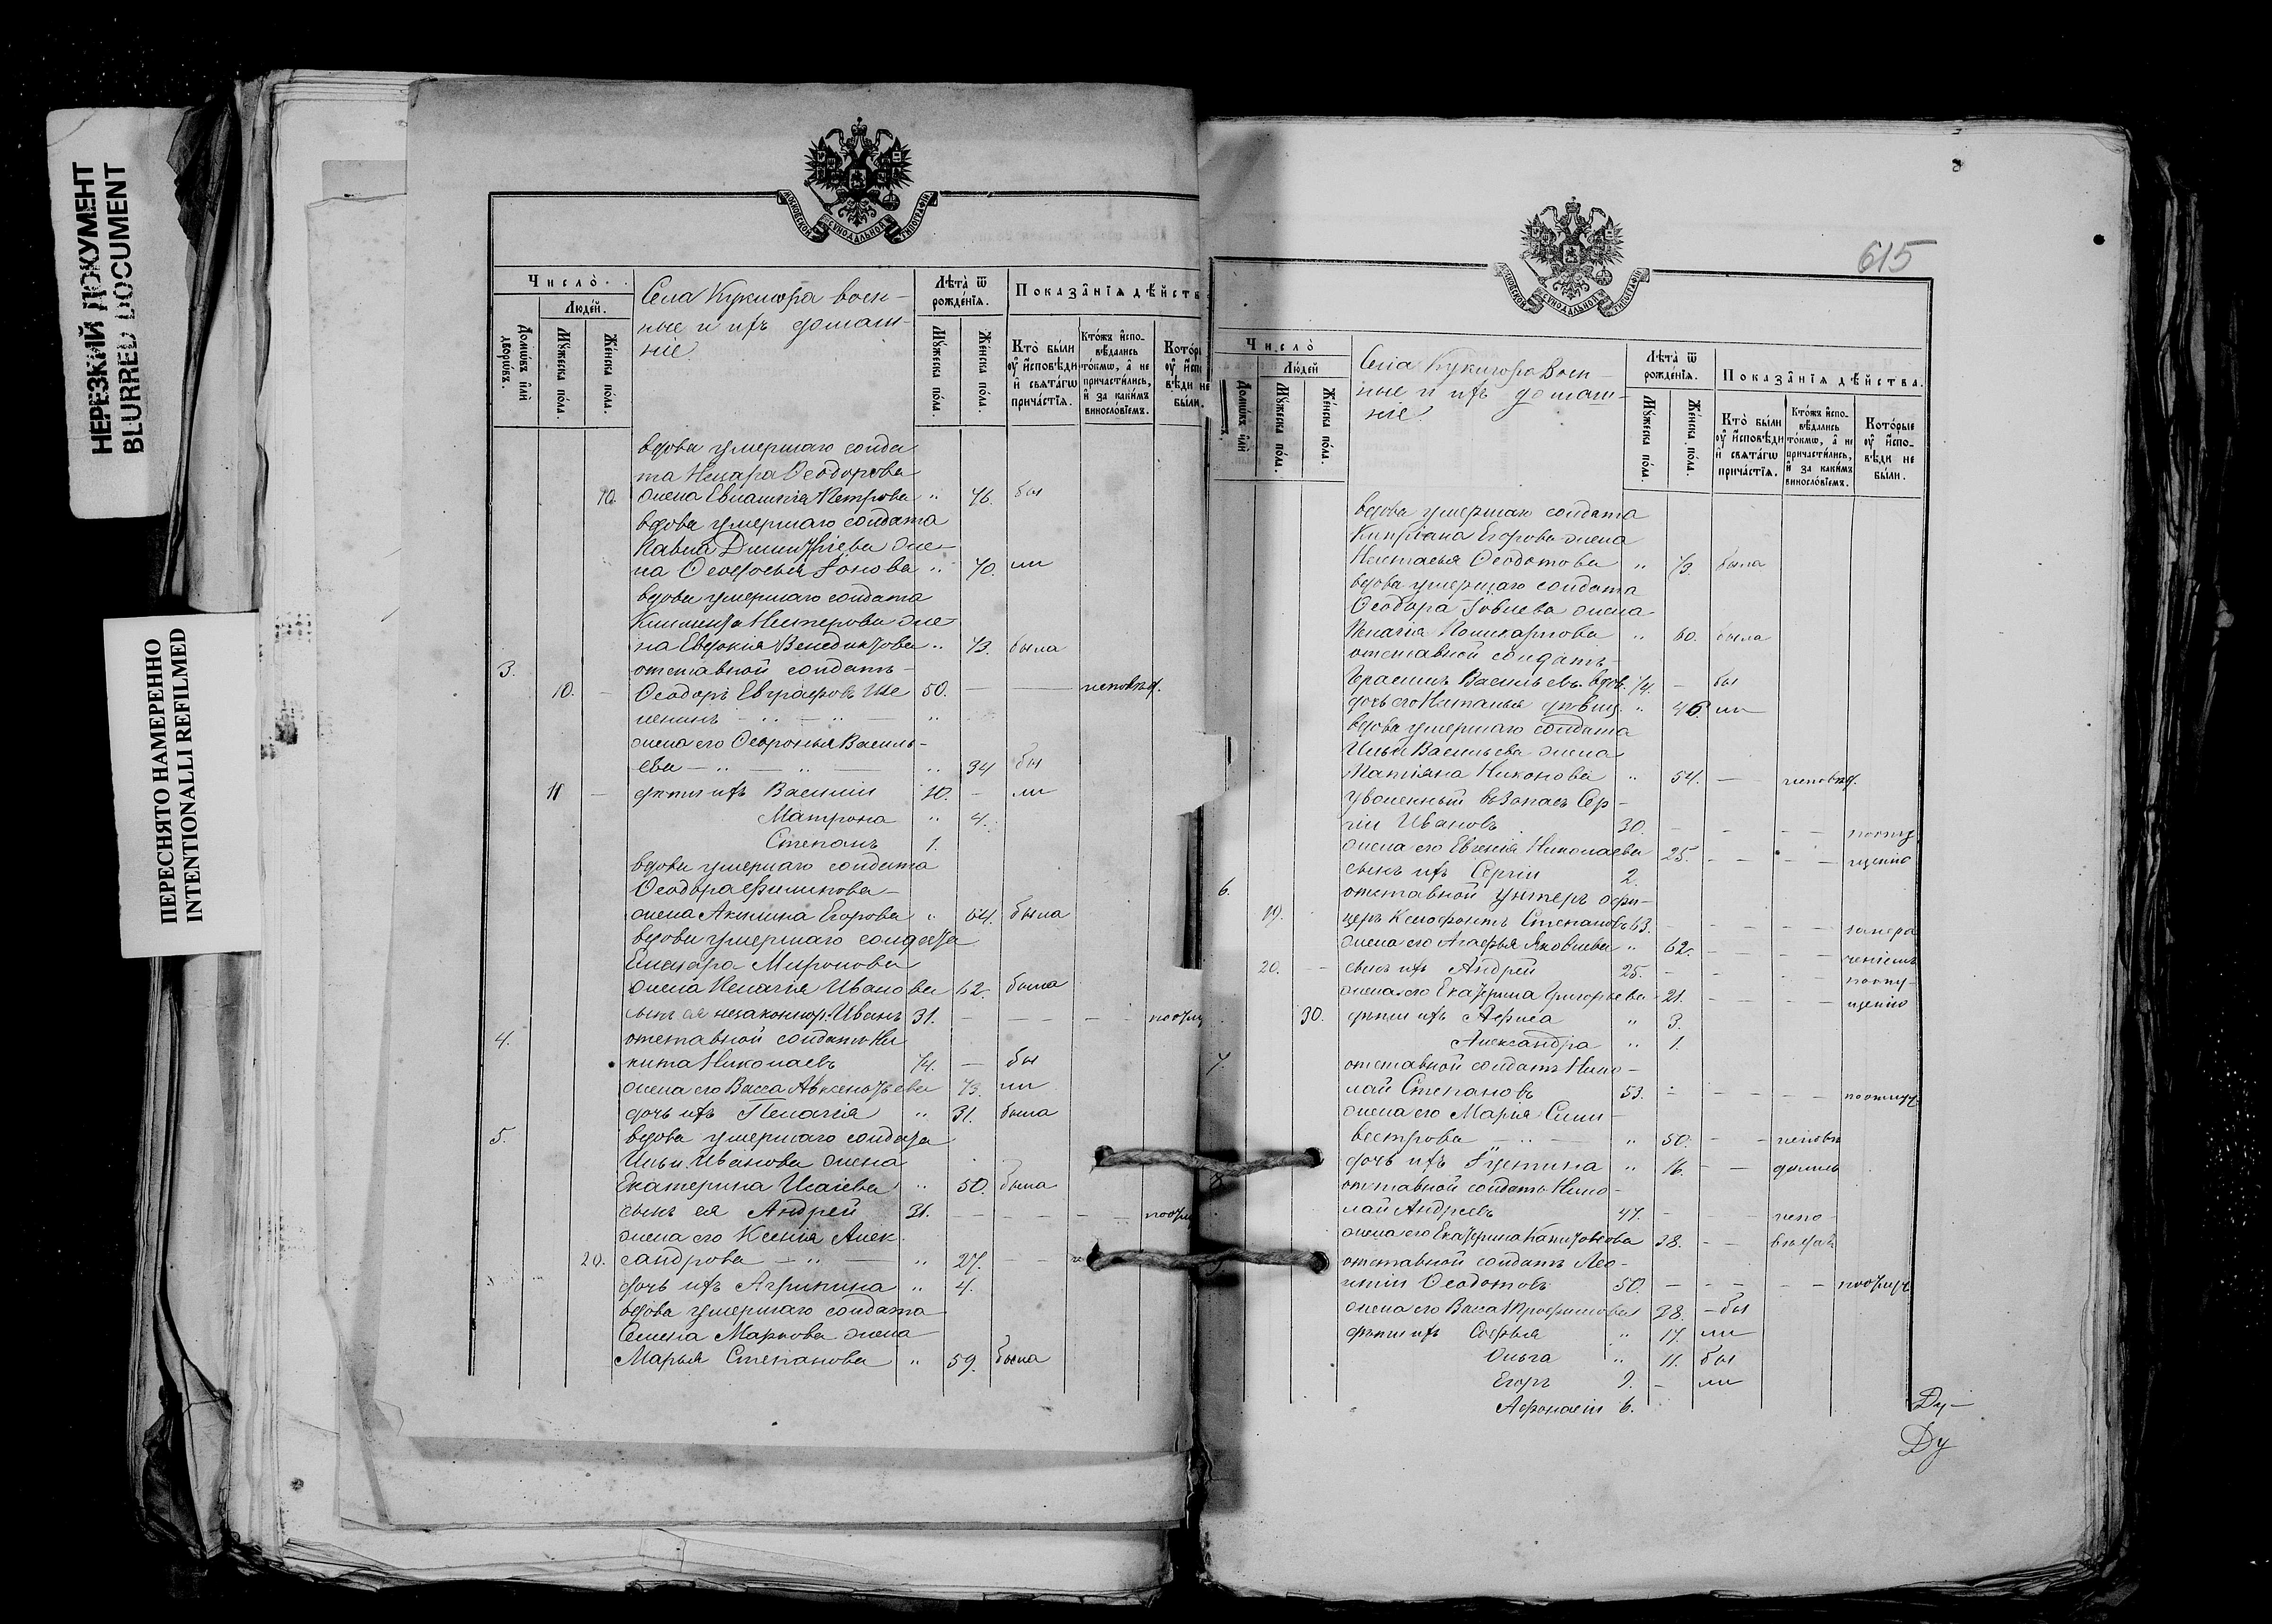 НЕРЕЗКИЙ ДОКУМЕНТ
BLURRED DOCUMENT
ПЕРЕСНЯТО НАМЕРЕННО
INTENTIONALLI REFILMED
МОСКОВСКОЙ СѴНОДАЛЬНОЙ ТИПОГРАФІИ
Число̀.
Людей.
Домѡвъ и҆лѝ дворѡвъ.
Мꙋ́жеска по́ла.
Же́нска по́ла.
Села Кукшора воен-
ные и ихъ домаш-
ніе
Лѣта̀ ѿ рожде́нїѧ.
Мꙋ́жеска по́ла.
Же́нска по́ла.
Показа̂нїѧ дѣ́йств
Кто̀ бы́ли ᲂу҆ и҆сповѣ́ди и҆ свѧта́гѡ прича́стїѧ.
Кто́жъ и҆спо-вѣ́дались то́кмѡ, а҆ не причасти́лись, и҆ за каки́мъ виносло́вїемъ.
вдова умершаго солда
та Назара Ѳеодорова
10. жена Евлампія Петрова " 76. бы
вдова умершаго солдата
Павла Димитріева же-
на Ѳеодосья Іонова " 70. ли
вдова умершаго солдата
Климента Нестерова же-
на Евдокія Венедиктова " 73. была
3. отставной солдатъ
10. Ѳеодоръ Евграфовъ 50. — —
жена его Ѳевронья Василь-
ева " 34 бы
11 дѣти ихъ Василій 10. — ли
Матрона " 4.
Степанъ 1.
вдова умершаго солдата
Ѳеодора Филипова
жена Акилина Егорова " 64. была
вдова умершаго солдата
Елеазара Миронова
жена Пелагія Иванова 62. была
сынъ ея незаконнор. Иванъ 31. — — — —
4. отставной солдатъ Ни
кита Николаевъ 74. — бы
жена его Васса Авксентьева 73. ли
дочь ихъ Пелагія " 31. была
5. вдова умершаго солдата
Ильи Иванова жена
Екатерина Исаіева " 50. была
сынъ ея Андрей 31. — — — —
жена его Ксенія Алек
20. сандрова " 27. — —
дочь ихъ Агрипина " 4.
вдова умершаго солдата
Семена Маркова жена
Марья Степанова " 59. была
615
МОСКОВСКОЙ СѴНОДАЛЬНОЙ ТИПОГРАФІИ
Число̀
Людей
Домѡвъ и҆лѝ
Мꙋ́жеска по́ла.
Же́нска по́ла.
Села Кукшора Воен-
ные и ихъ домаш-
ніе.
Лѣта̀ ѿ рожде́нїѧ.
Мꙋ́жеска по́ла.
Же́нска по́ла.
Показа̂нїѧ дѣ́йства.
Кто̀ бы́ли ᲂу҆ и҆сповѣ́ди и҆ свѧта́гѡ прича́стїѧ.
Кто́жъ и҆спо-вѣ́дались то́кмѡ, а҆ не причасти́лись, и҆ за каки́мъ виносло́вїемъ.
Кото́рые ᲂу҆ и҆спо-вѣ́ди не бы́ли.
вдова умершаго солдата
Кипріана Егорова жена
Настасья Ѳеодотова " 73. была
вдова умершаго солдата
Ѳеодора Іовлева жена
Пелагія Поликарпова " 60. была
отставной солдатъ
Герасимъ Васильевъ вдов. 74. — бы
дочь его Наталья дѣвиц. " 46. ли
вдова умершаго солдата
Ильи Васильева жена
Татіяна Никонова " 54. —
уволенный въ запасъ Сер-
гій Ивановъ 30. — — — —
жена его Евгенія Николаева 25. — — — —
сынъ ихъ Сергій 2.
6. отставной унтеръ офи-
19. церъ Ксенофонтъ Степановъ 63. — — — —
жена его Агафья Яковлева " 62. — — — —
20. сынъ ихъ Андрей 25. — — — —
жена его Екатерина Григорьева 21. — — — —
30. дѣти ихъ " 3.
Александра " 1.
7. отставной солдатъ Нико-
лай Степановъ 53. — — — —
жена его Марія Силь-
вестрова " 50. — —
дочь ихъ Іустина " 16. — —
отставной солдатъ Нико-
лай Андреевъ 47. — —
жена его Екатерина 38. — —
отставной солдатъ Лео-
нтій Ѳеодотовъ 50. — — — —
жена его Васса Трофимова 38. — бы
дѣти ихъ Софья " 17. ли
Ольга " 11. бы
Егоръ 9. — ли
Афанасій 6.
Ду-
Ду